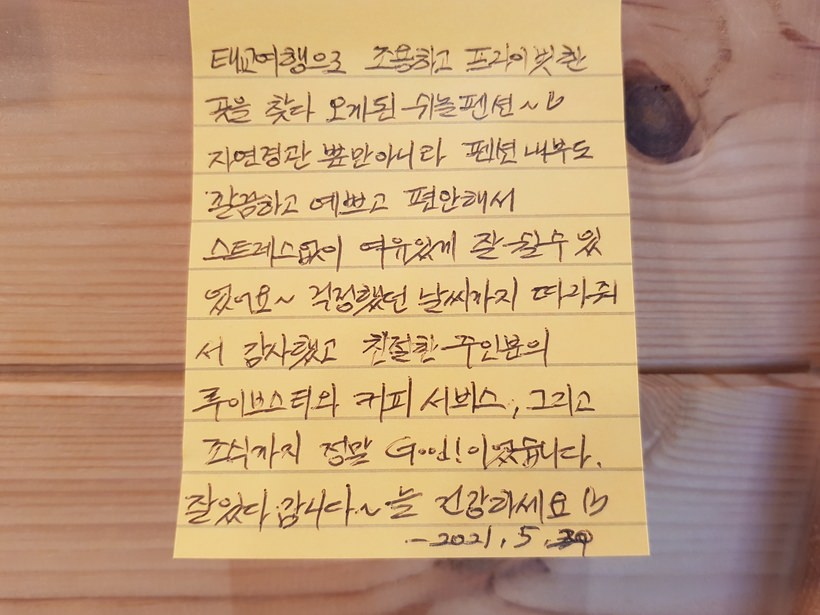 태교여행으로 조용하고 프라이빗한
곳을 찾다 오게된 쉬놀펜션~♡
자연경관 뿐만아니라 펜션 내부도
깔끔하고 예쁘고 편안해서
스트레스없이 여유있게 잘 쉴수 있
었어요~ 걱정했던 날씨까지 따라줘
서 감사했고 친절한 주인분의
루이보스티와 커피 서비스, 그리고
조식까지 정말 Good!이었습니다.
잘있다 갑니다~ 늘 건강하세요♡
- 2021. 5.